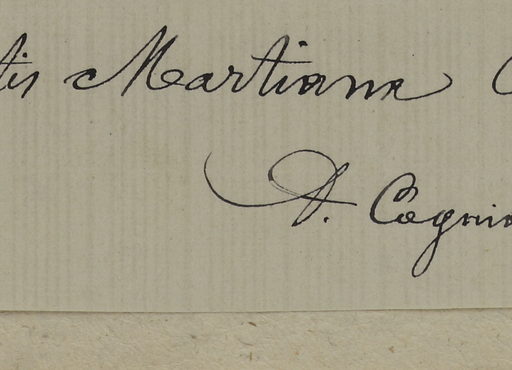 tis Martiana C
A. Cogniau